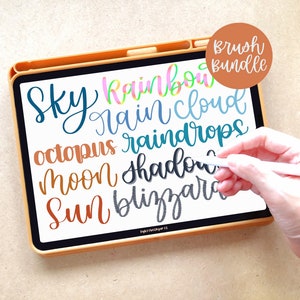 Brush
Bundle
Sky rainbow
rain cloud
octopus raindrops
moon shadow
Sun blizzard